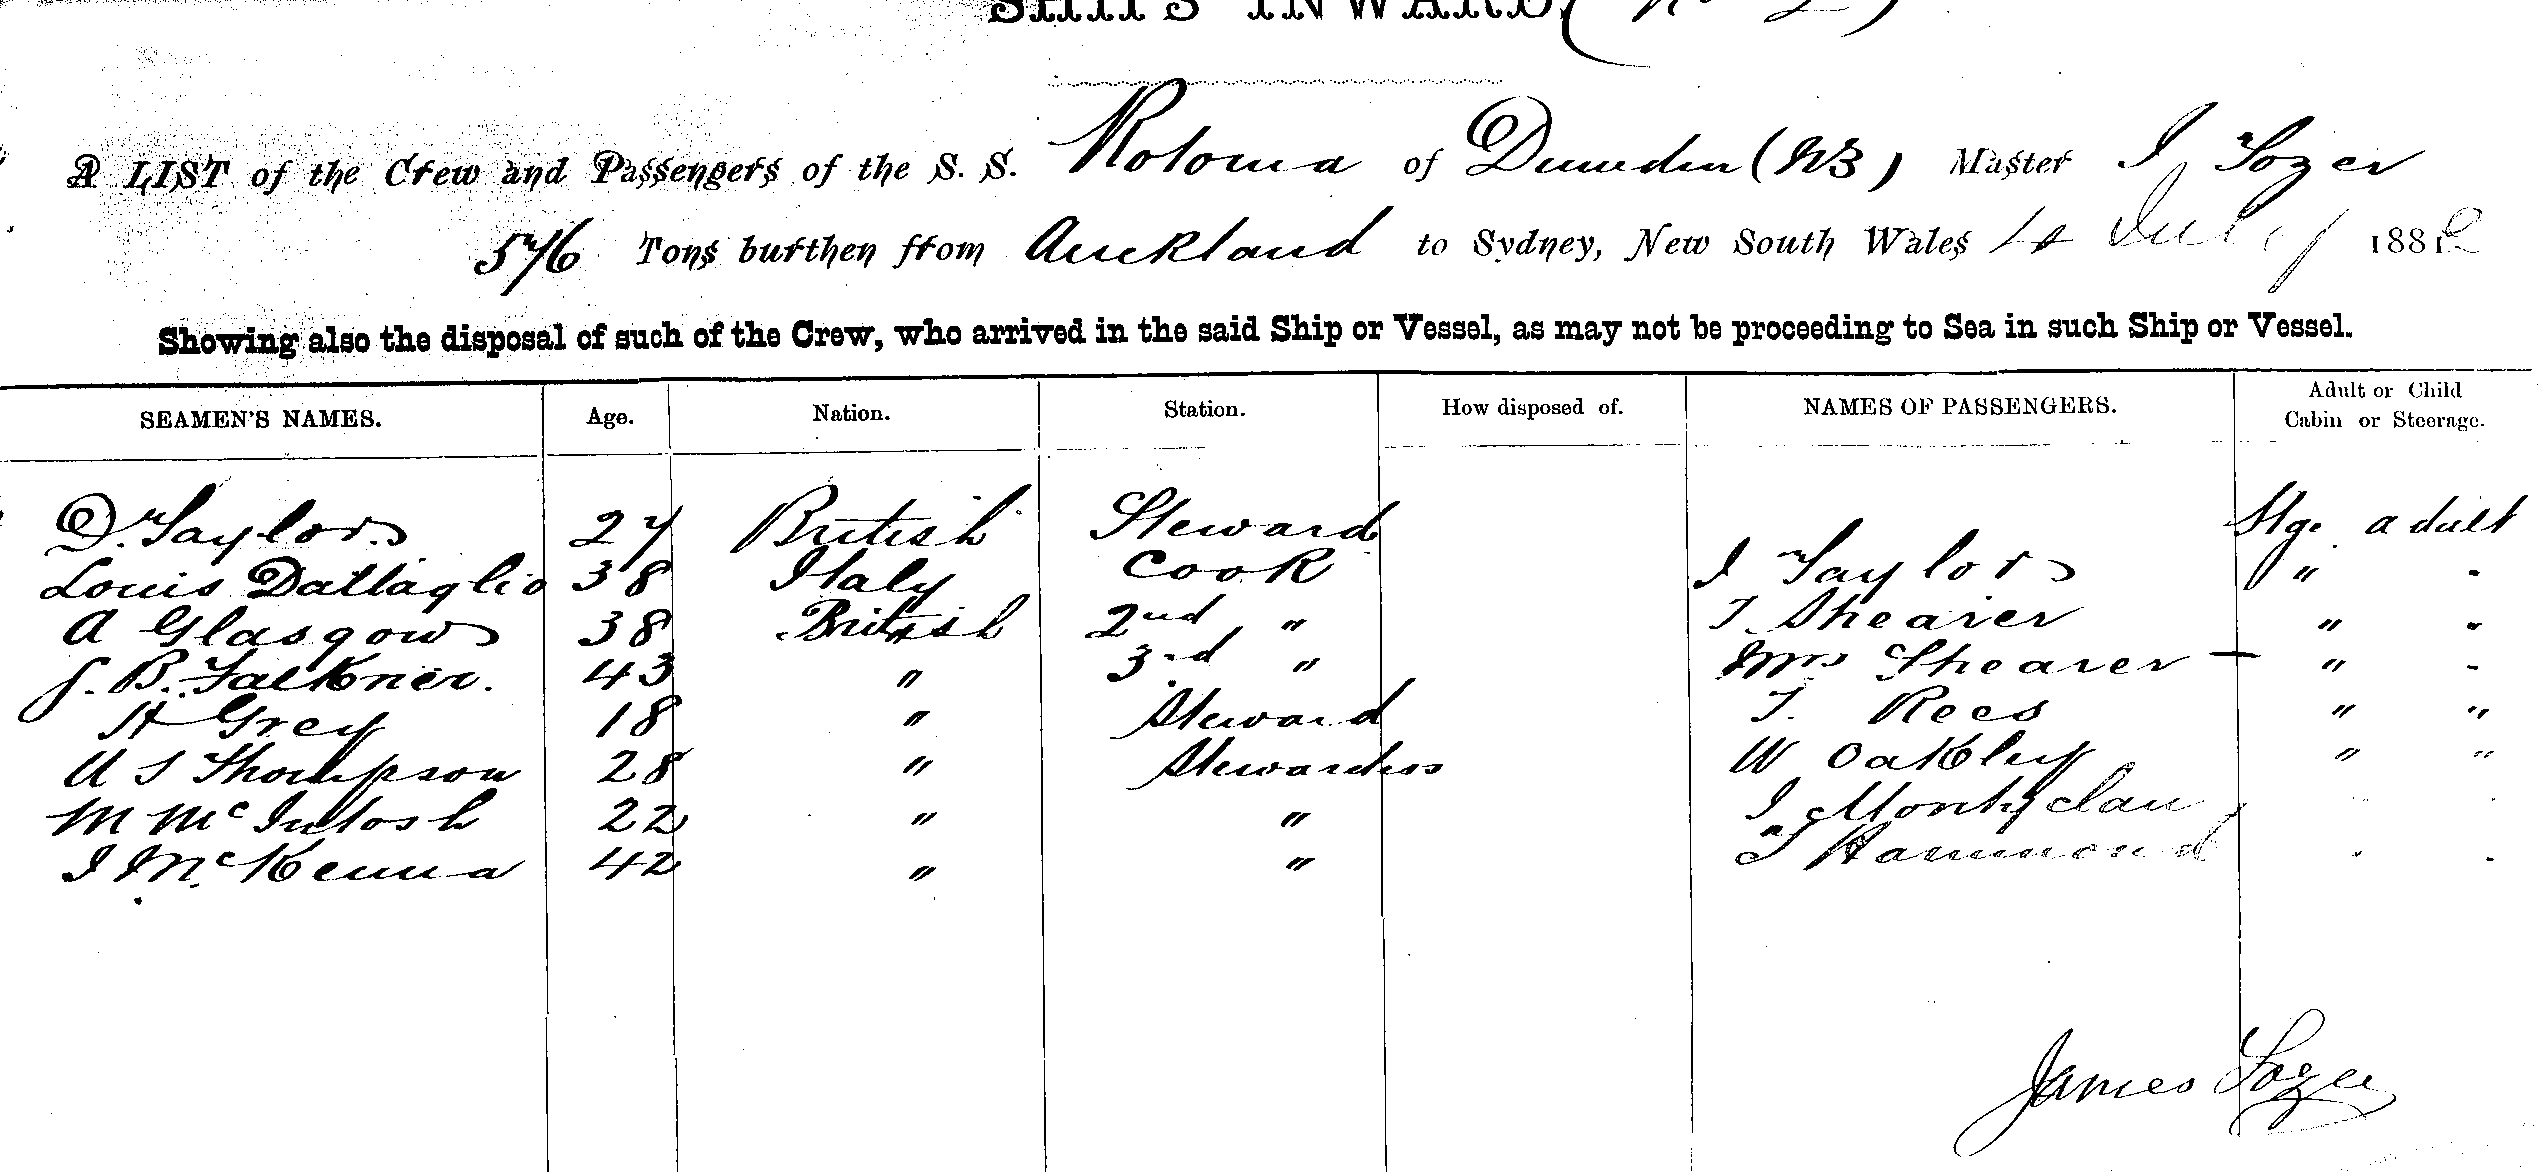 SHIP'S INWARD. (No 2)
A LIST of the Crew and Passengers of the S. S. Rotoma of Dunedin (NZ) Master J Tozer
576 Tons burthen from Auckland to Sydney, New South Wales July 1882
Showing also the disposal of such of the Crew, who arrived in the said Ship or Vessel, as may not be proceeding to Sea in such Ship or Vessel.
SEAMEN'S NAMES. Age. Nation. Station. How disposed of. NAMES OF PASSENGERS. Adult or Child
Cabin or Steerage.
D. Taylor 27 British Steward Stge. adult
Louis Battaglio 38 Italy Cook J Taylor " "
A Glasgow 38 British 2nd " T. Shearer " "
J. B. Falkner. 43 " 3rd " Mrs Shearer — " "
H Grey 18 " Steward T. Rees " "
U S Thompson 28 " Stewardess W Oakley " "
M McIntosh 22 " " J
J McKenna 42 " " T Hammond
James Tozer